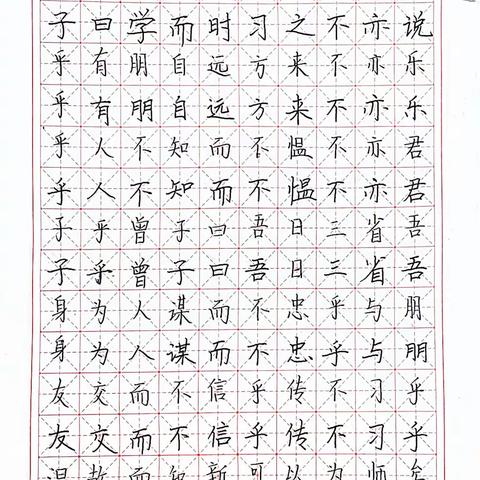 子曰学而时习之不亦说
乎有朋自远方来不亦乐
乎有朋自远方来不亦乐
乎人不知而不愠不亦君
乎人不知而不愠不亦君
子乎曾子曰吾日三省吾
子乎曾子曰吾日三省吾
身为人谋而不忠乎与朋
身为人谋而不忠乎与朋
友交而不信乎传不习乎
友交而不信乎传不习乎
温故而知新可以为师矣